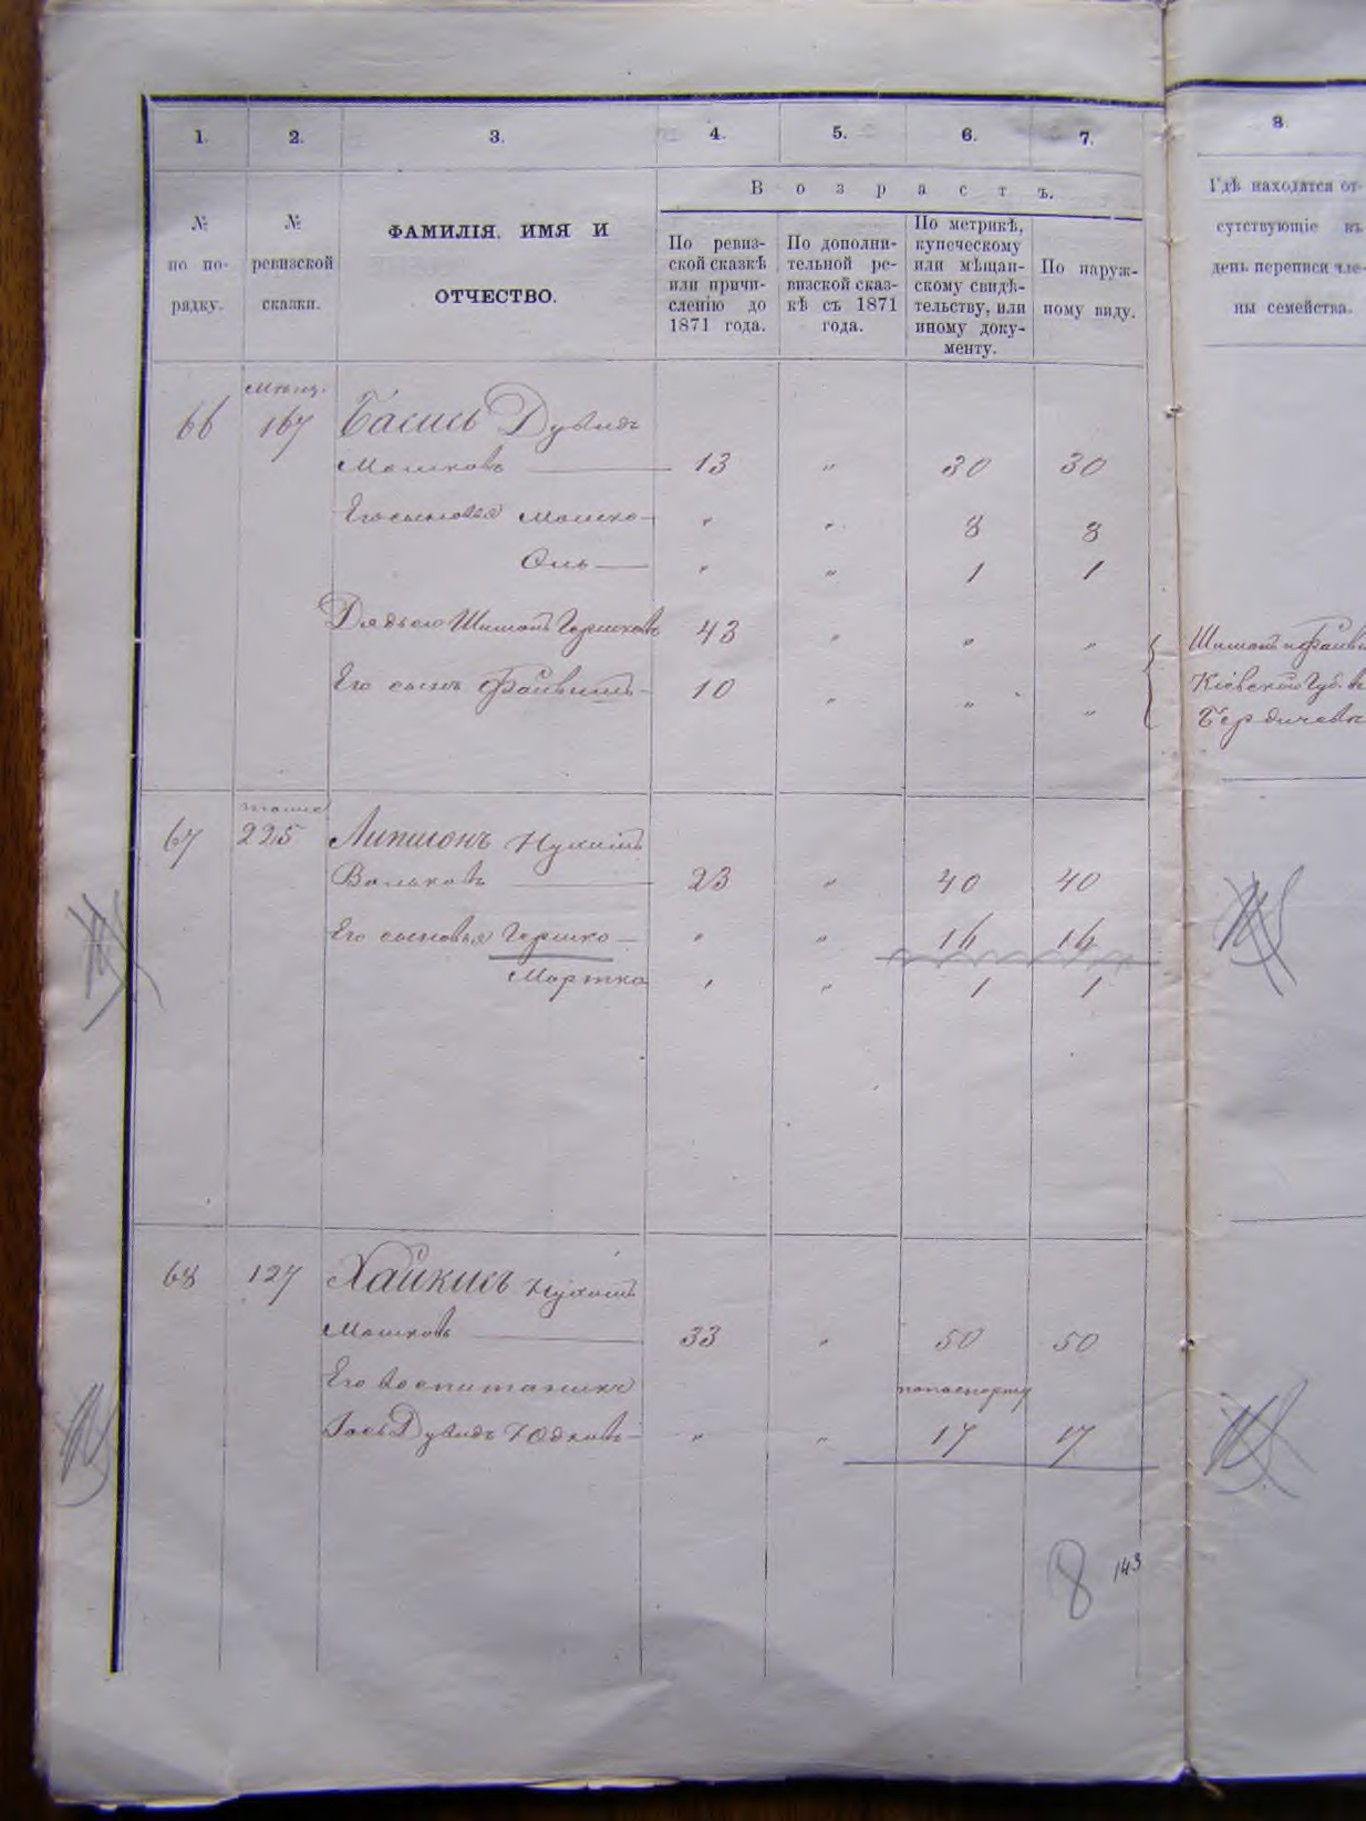 1. 2. 3. 4. 5. 6. 7. 8.
Возрастъ.
№ по порядку.
№ ревизской сказки.
ФАМИЛІЯ, ИМЯ И
ОТЧЕСТВО.
По ревиз-
ской сказкѣ
или причи-
сленію до
1871 года.
По дополни-
тельной ре-
визской сказ-
кѣ съ 1871
года.
По метрикѣ,
купеческому
или мѣщан-
скому свидѣ-
тельству, или
иному доку-
менту.
По наруж-
ному виду.
Гдѣ находятся от-
сутствующіе въ
день переписи чле-
ны семейства.
66 167 Басисъ Дувидъ
Мошковъ 13 " 30 30
Его сыновья Мошко " " 8 8
" " 1 1
Дядя его Шимонъ Гершковъ 43 " " "
Его сынъ Файвишъ 10 " " "
Шимонъ и
Кіевской Губ. въ
Бердичевѣ
тоже
67 225 Липшонъ Нухимъ
Вольковъ 23 " 40 40
Его сыновья Гершко " " 16 16
Мортко " " 1 1
68 127 Хайкинъ Нухимъ
Мошковъ 33 " 50 50
Его воспитаникъ попаспорту
Дувидъ Юдковъ " " 17 17
8 143